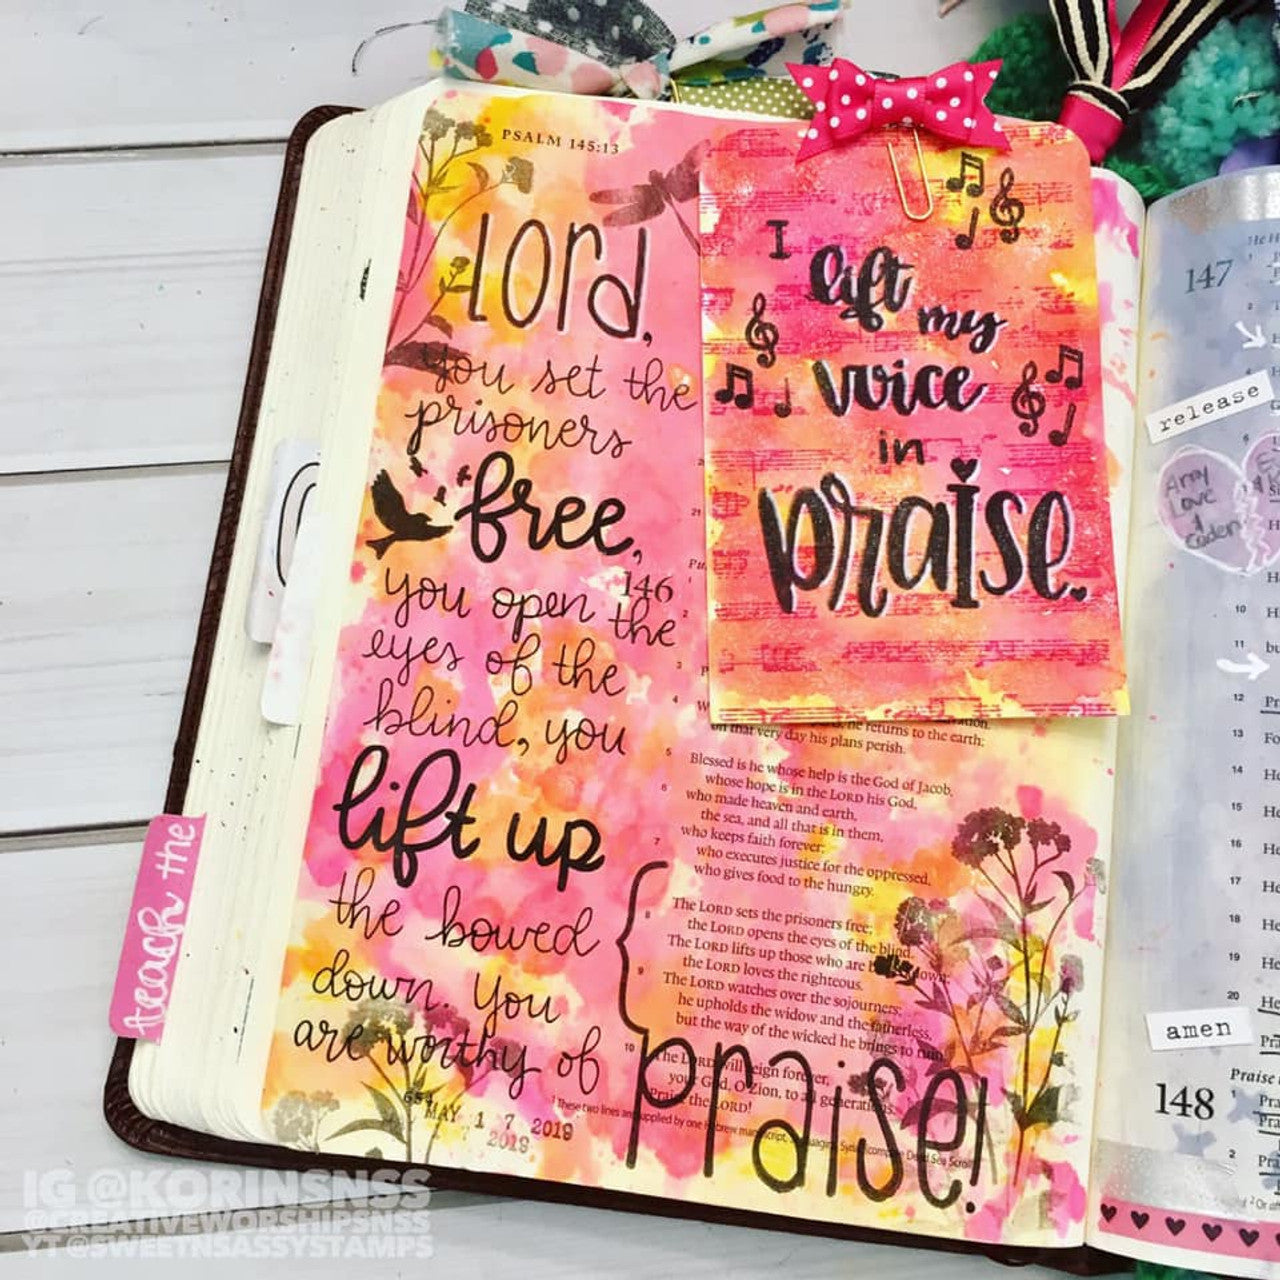 PSALM 145:13
Lord,
you set the
prisoners
free,
you open the
eyes of the
blind, you
lift up
the bowed
down. You
are worthy of
praise!
I
lift
my
voice
in
praise.
21
146
2
3
4
on that very day his plans perish.
he returns to the earth;
5 Blessed is he whose help is the God of Jacob,
whose hope is in the LORD his God,
6 who made heaven and earth,
the sea, and all that is in them,
7 who keeps faith forever;
who executes justice for the oppressed,
who gives food to the hungry.
8 The LORD sets the prisoners free;
the LORD opens the eyes of the blind.
The LORD lifts up those who are down;
the LORD loves the righteous.
9 The LORD watches over the sojourners;
he upholds the widow and the fatherless,
but the way of the wicked he brings to ruin.
10 The LORD will reign forever,
your God, O Zion, to all generations.
Praise the LORD!
1 These two lines are supplied by one Hebrew manuscript, Dead Sea Scroll
654
MAY 1 7 2019
2019
teach the
147
release
Amy
Love
Caden
10
11 bu
12 Pr
13 Fo
14 He
15
16 He
17 He
18 He
19 He
20 He
amen
Praise
148
1 Pra
Pra
2 Pra
IG @KORINSNSS
@CREATIVEWORSHIPSNSS
YT @SWEETNSASSYSTAMPS